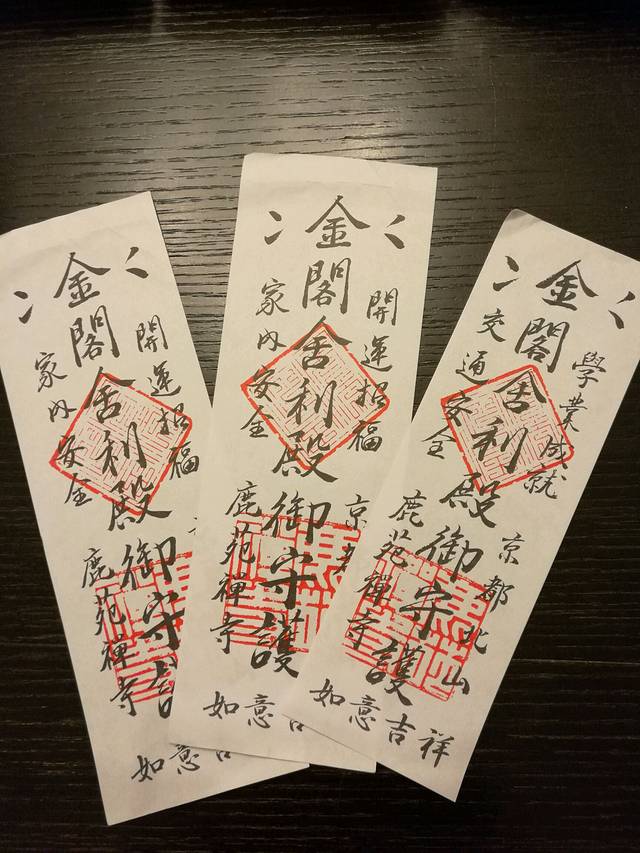 開運招福
金閣舎利殿御守
家内安全
鹿苑禪寺
如意
開運招福
京都
金閣舎利殿御守護
家内安全
鹿苑禪寺
如意
學業成就
京都北山
金閣舎利殿御守護
交通安全
鹿苑禪寺
如意吉祥